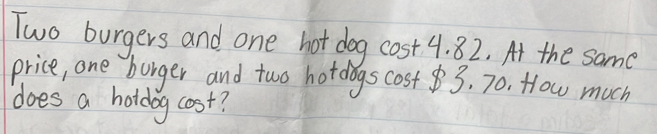 Two burgers and one hot dog cost 4.82. At the same
price, one burger and two hotdogs cost $3.70. How much
does a hotdog cost?